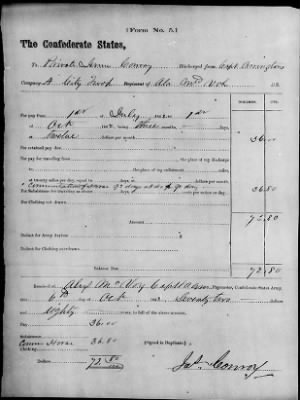 [FORM No. 5.]
The Confederate States,
To Private James Conroy Discharged from Capt Arrington's
Company A City Troop Regiment of Ala Vols 186
DOLLARS. CTS.
For pay from 1st of July 186 to 1st
of Oct 186 being Three months, days,
at Twelve dollars per month 36.00
For retained pay due
For pay for traveling from the place of my discharge
to the place of my enlistment miles,
at twenty miles per day, equal to days, at dollars per month
Commutation of horse 92 days at 40 ¢ per day 36.80
For Clothing not drawn
Amount 72.80
Deduct for Army Asylum
Deduct for Clothing overdrawn
Balance Due 72.80
Received of Capt Paymaster, Confederate States Army,
6th of Oct 186 Seventy Two dollars
Eighty cents, in full of the above account.
Pay 36.00
Comm Horse 36.80 (Signed in Duplicate)
Clothing
Dollars 72.80 Jas. Conroy